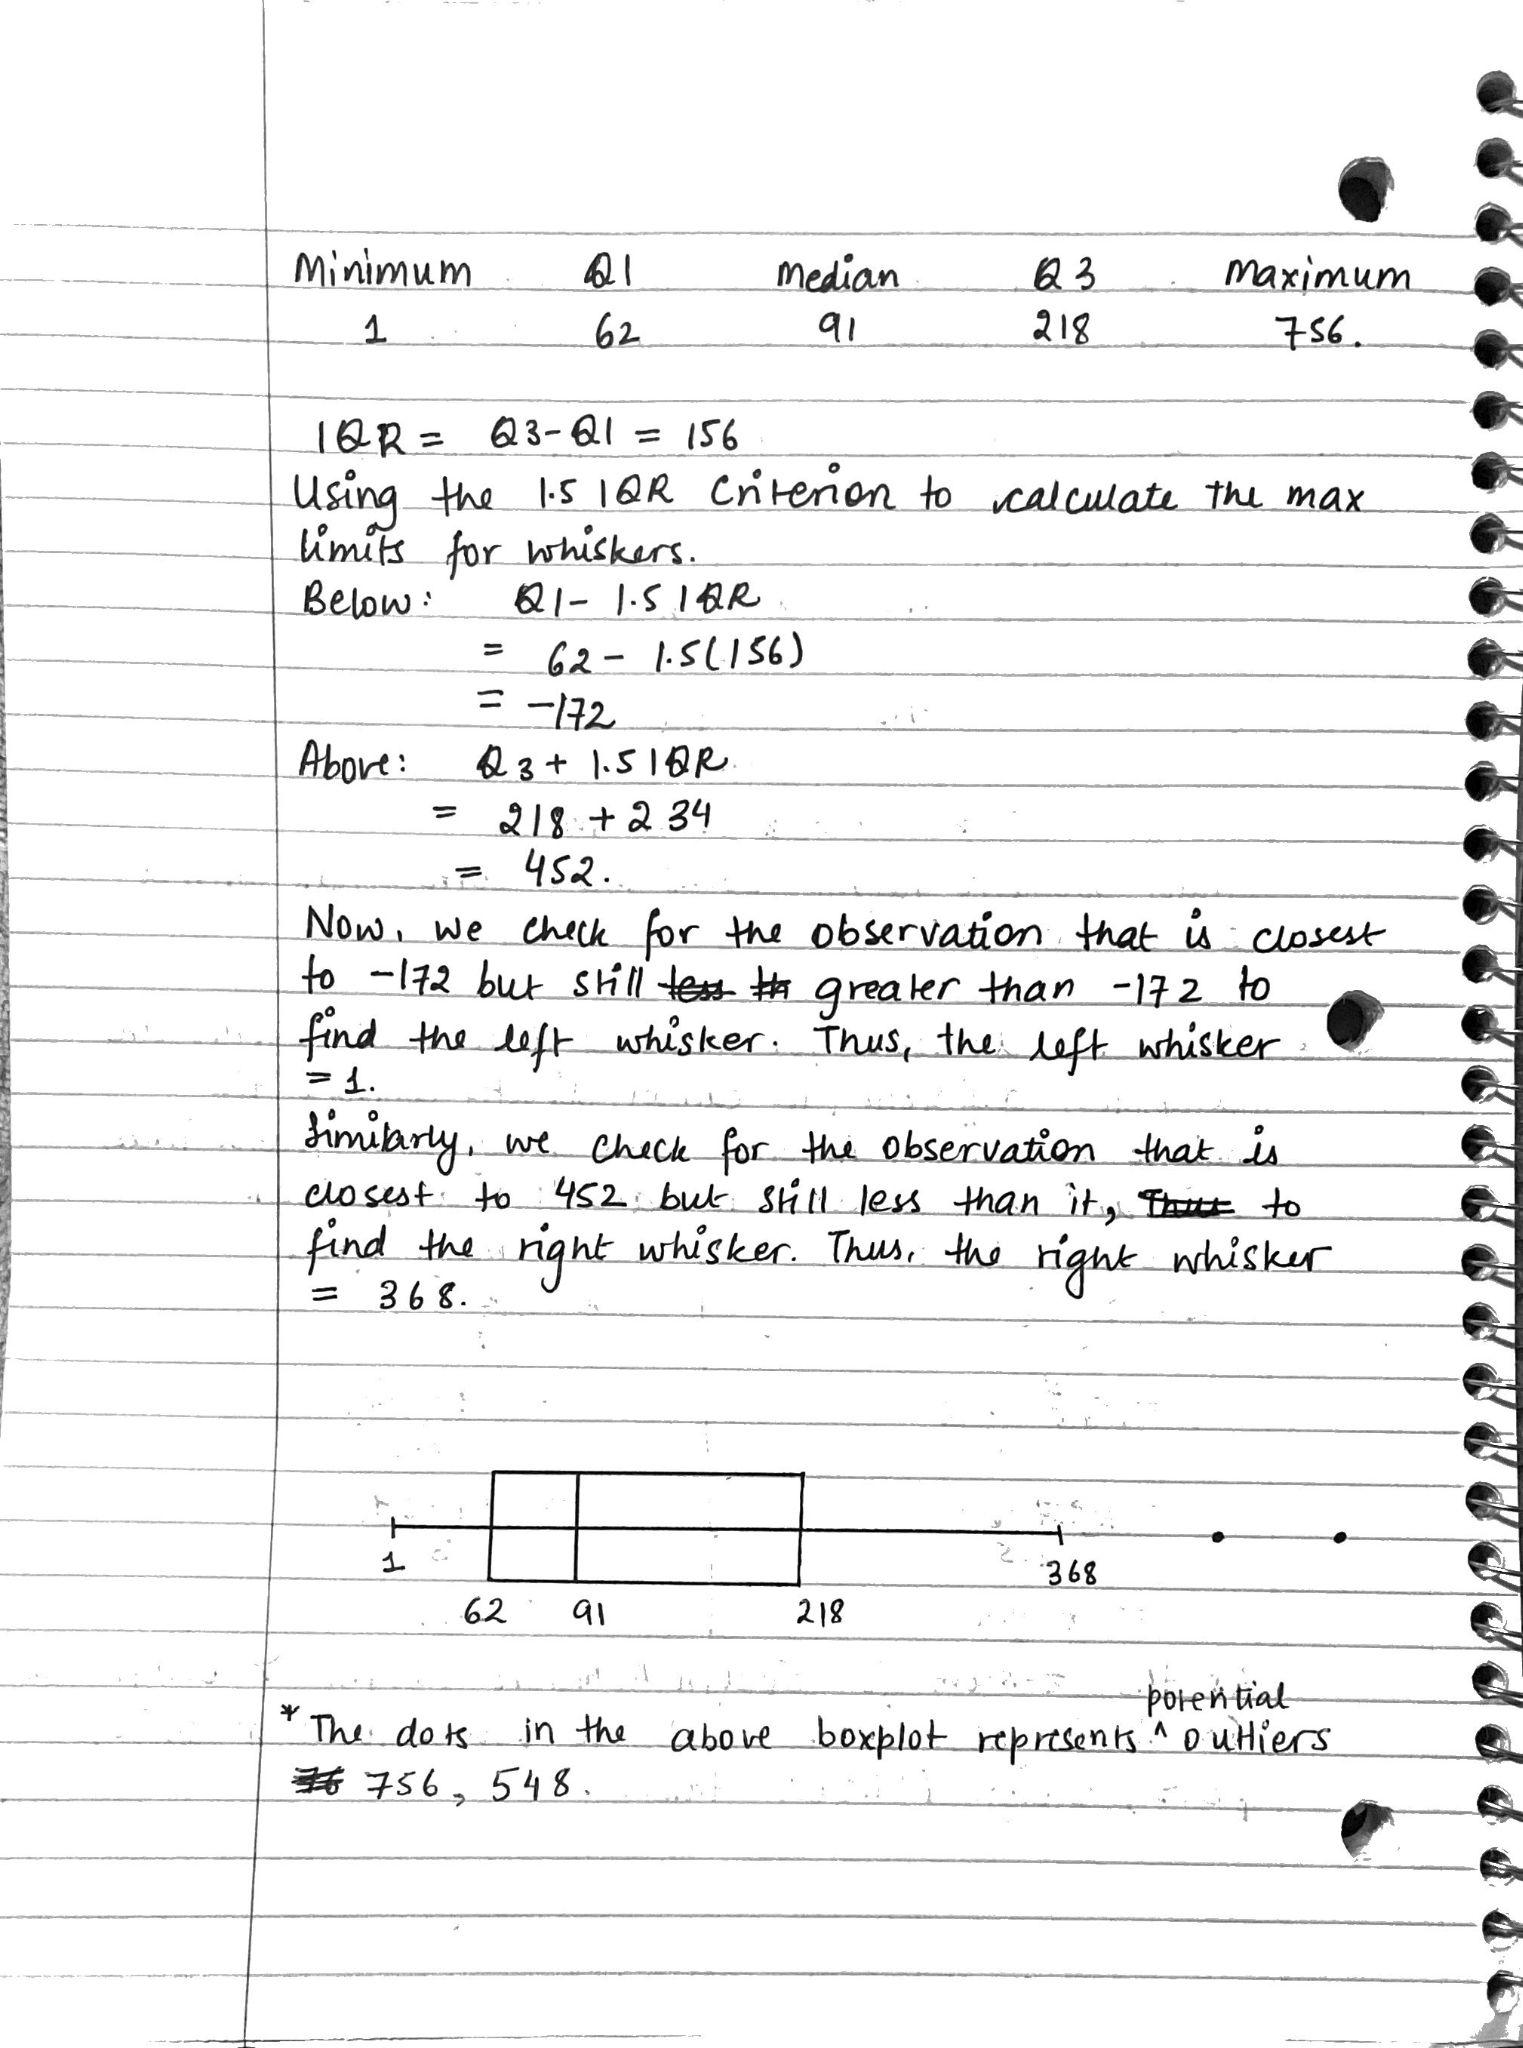 Minimum Q1 Median Q3 Maximum
1 62 91 218 756.
IQR = Q3-Q1 = 156
Using the 1.5 IQR Criterion to calculate the max
limits for whiskers.
Below: Q1 - 1.5 IQR
= 62 - 1.5(156)
= -172
Above: Q3 + 1.5 IQR
= 218 + 234
= 452.
Now, we check for the observation that is closest
to -172 but still less th greater than -172 to
find the left whisker. Thus, the left whisker
= 1.
Similarly, we check for the observation that is
closest to 452 but still less than it, Thus to
find the right whisker. Thus, the right whisker
= 368.
1 368
62 91 218
potential
* The dots in the above boxplot represents ^ outliers
756, 548.